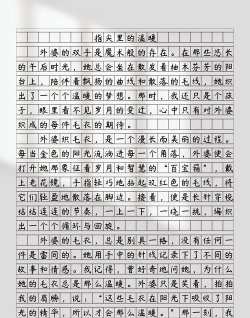 指尖里的温暖
外婆的双手是魔术般的存在。在那些悠长
的午后时光，她总会坐在散发着柚木芬芳的阳
台上，陪伴着飘扬的曲线和散落的毛线，她织
出了一个个温暖的梦想。那时，我还只是个孩
子，眼里看不见岁月的变迁，心中只有对外婆
织成的每件毛衣的期待。
外婆织毛衣，是一个漫长而美丽的过程。
每当金色的阳光流淌进每一个角落，外婆便会
打开她那象征着岁月和智慧的“百宝箱”，戴
上老花镜，手指轻巧地拈起玫红色的毛线，将
它们轻盈地散落在脚边。接着，便是长针穿梭
咕咕连连的节奏，一上一下，一绕一挑，编织
出一个个循环与回旋。
外婆的毛衣，总是别具一格，没有任何一
件是雷同的。她用手中的针线记录下了不同的
故事和情感。我记得，曾好奇地问她，为什么
她的毛衣总是那么温暖。外婆只是笑着，拍拍
我的肩膀，说：“这些毛衣在阳光下吸收了阳
光的精华，所以才会那么温暖。”那一刻，我